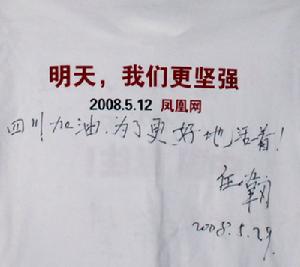 明天，我们更坚强
2008.5.12 凤凰网
四川加油、为了更好地活着！
2008.5.29.